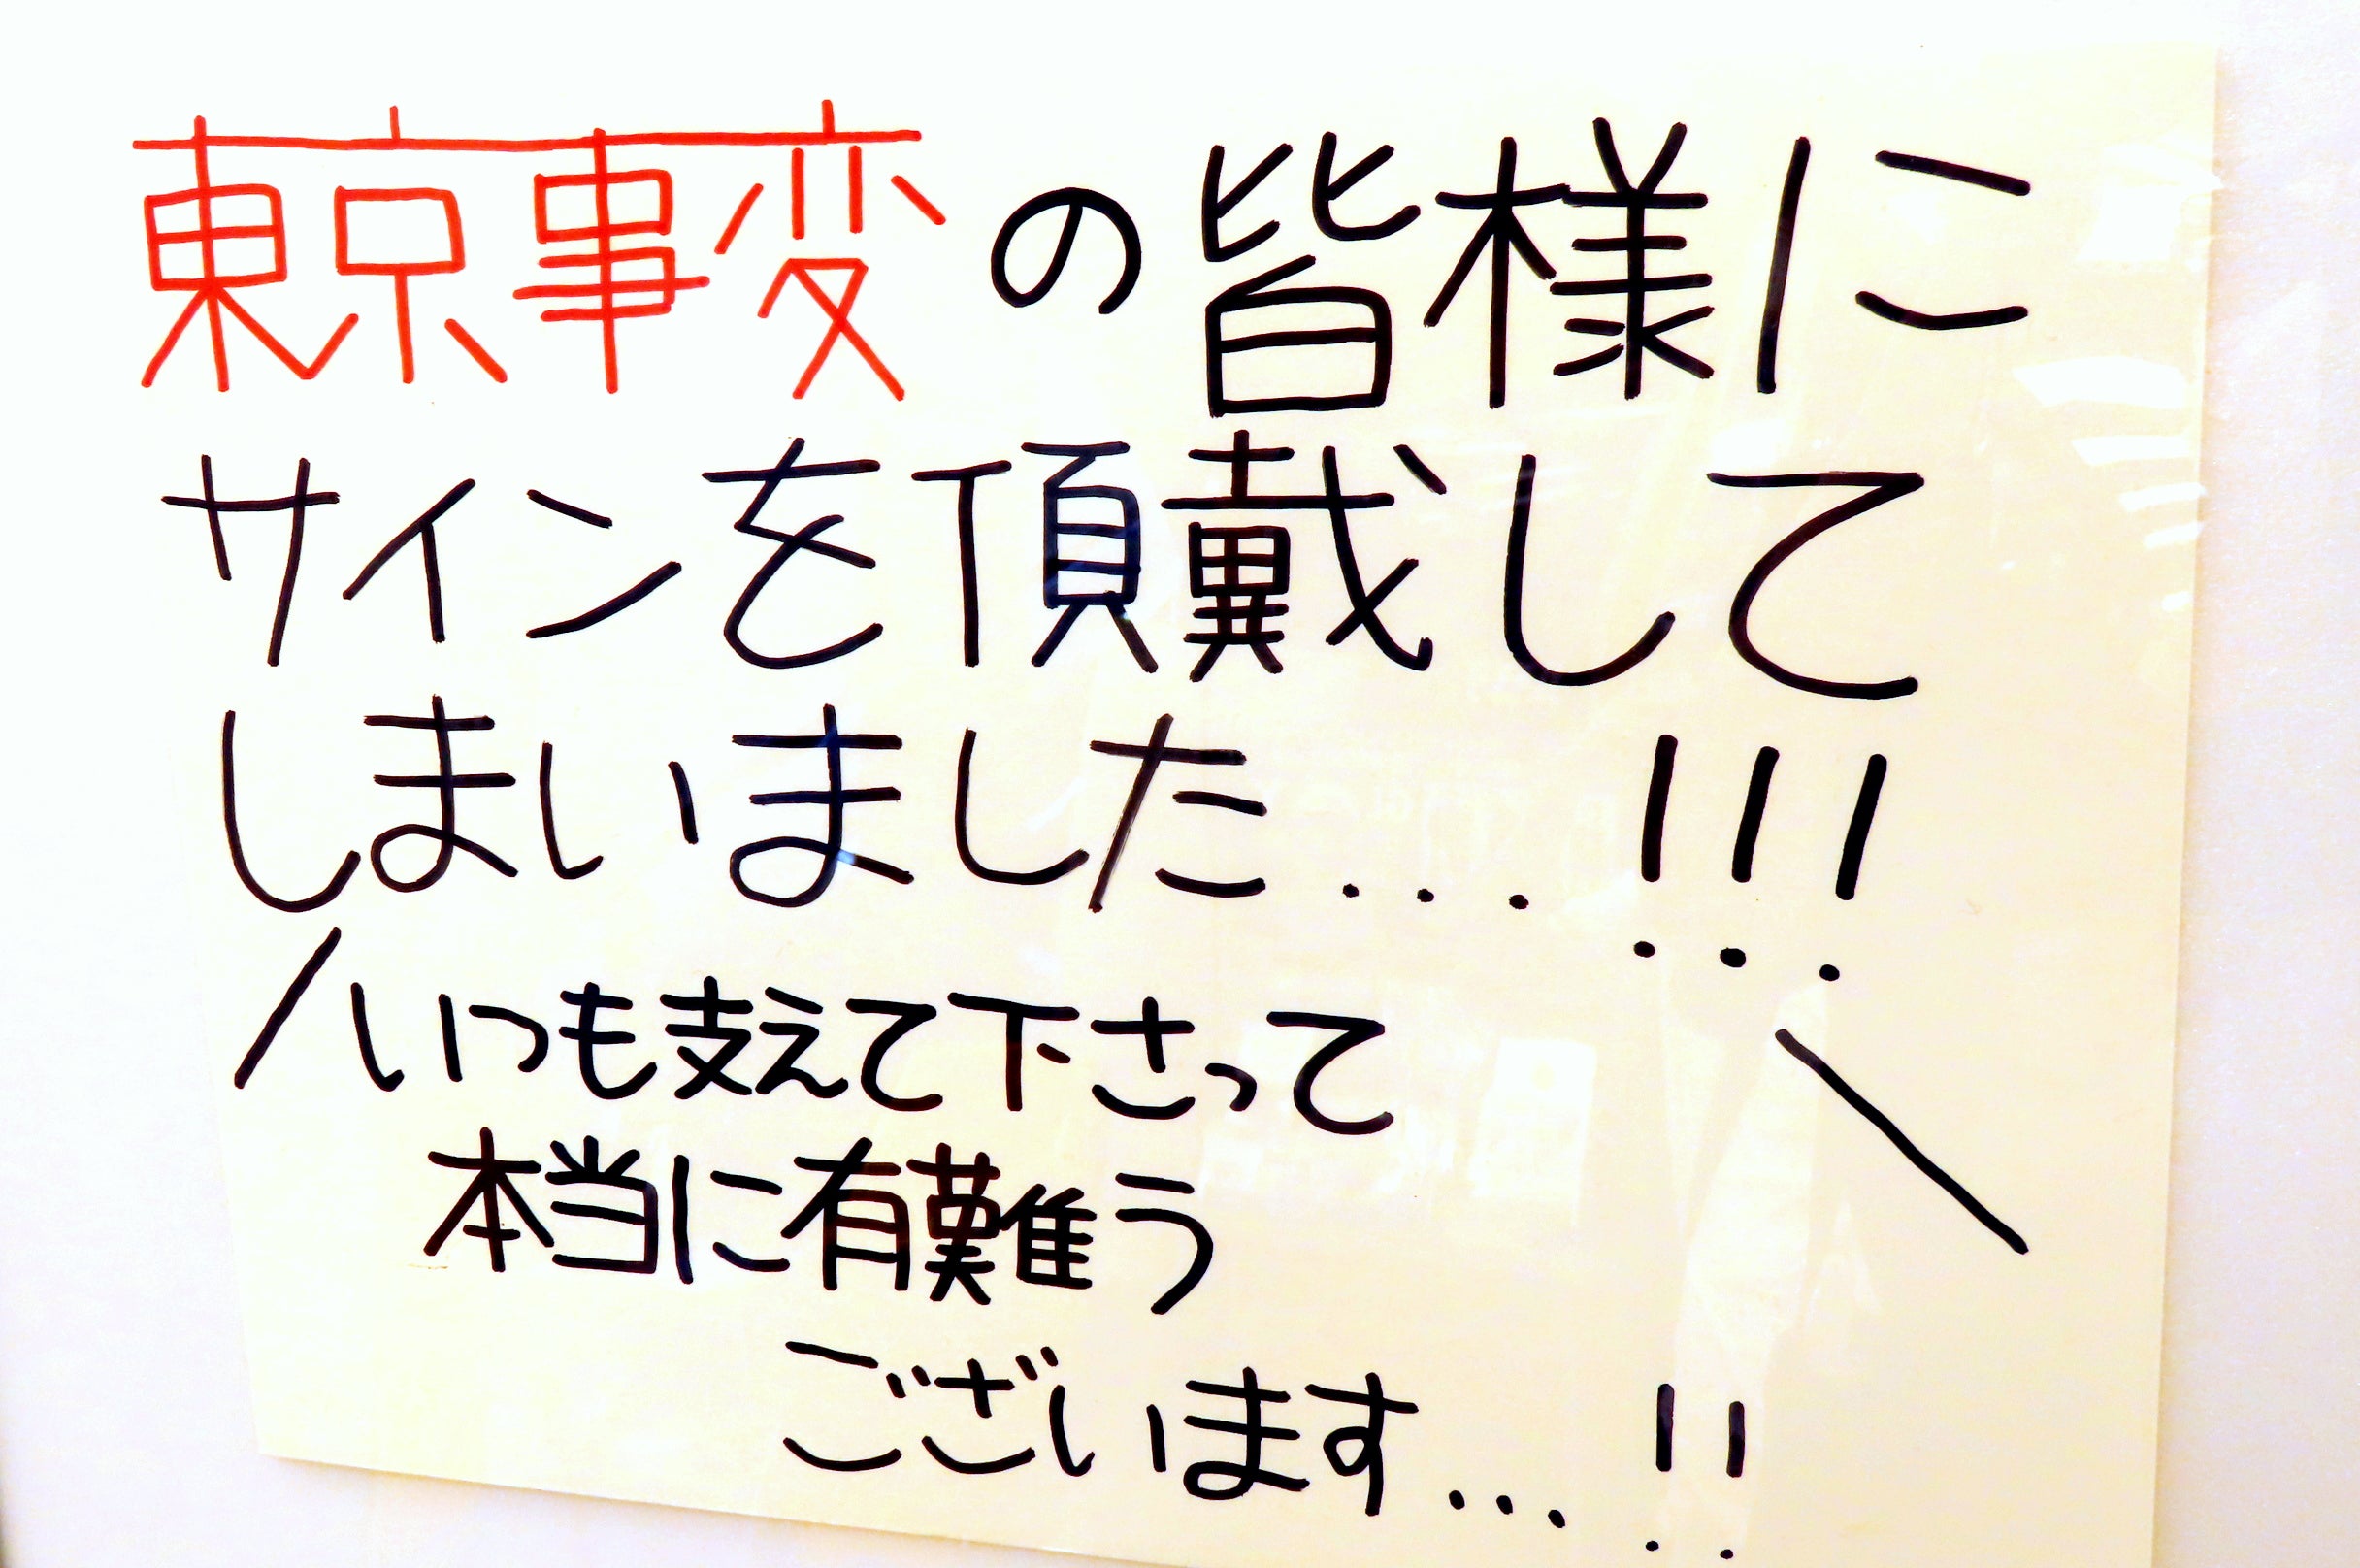 東京事変の皆様に
サインを頂戴して
しまいました...!!!
/いつも支えて下さって\
本当に有難う
ございます...!!